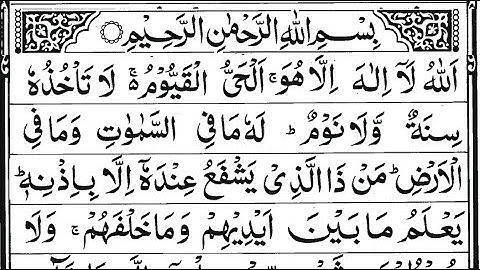 بِسْمِ اللهِ الرَّحْمٰنِ الرَّحِيْمِ
اَللهُ لَآ اِلٰهَ اِلَّا هُوَ ۚ اَلْحَيُّ الْقَيُّوْمُ ۚ۬ لَا تَاْخُذُهٗ
سِنَةٌ وَّلَا نَوْمٌ ؕ لَهٗ مَا فِي السَّمٰوٰتِ وَمَا فِي
الْاَرْضِ ؕ مَنْ ذَا الَّذِيْ يَشْفَعُ عِنْدَهٗٓ اِلَّا بِاِذْنِهٖ ؕ
يَعْلَمُ مَا بَيْنَ اَيْدِيْهِمْ وَمَا خَلْفَهُمْ ۚ وَلَا